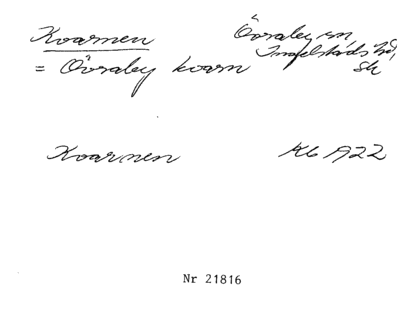 Kvarnen
Övraby sn,
Ingelstads hd,
Sk
= Övraby kvarn
Kvarnen Kb A22
Nr 21816